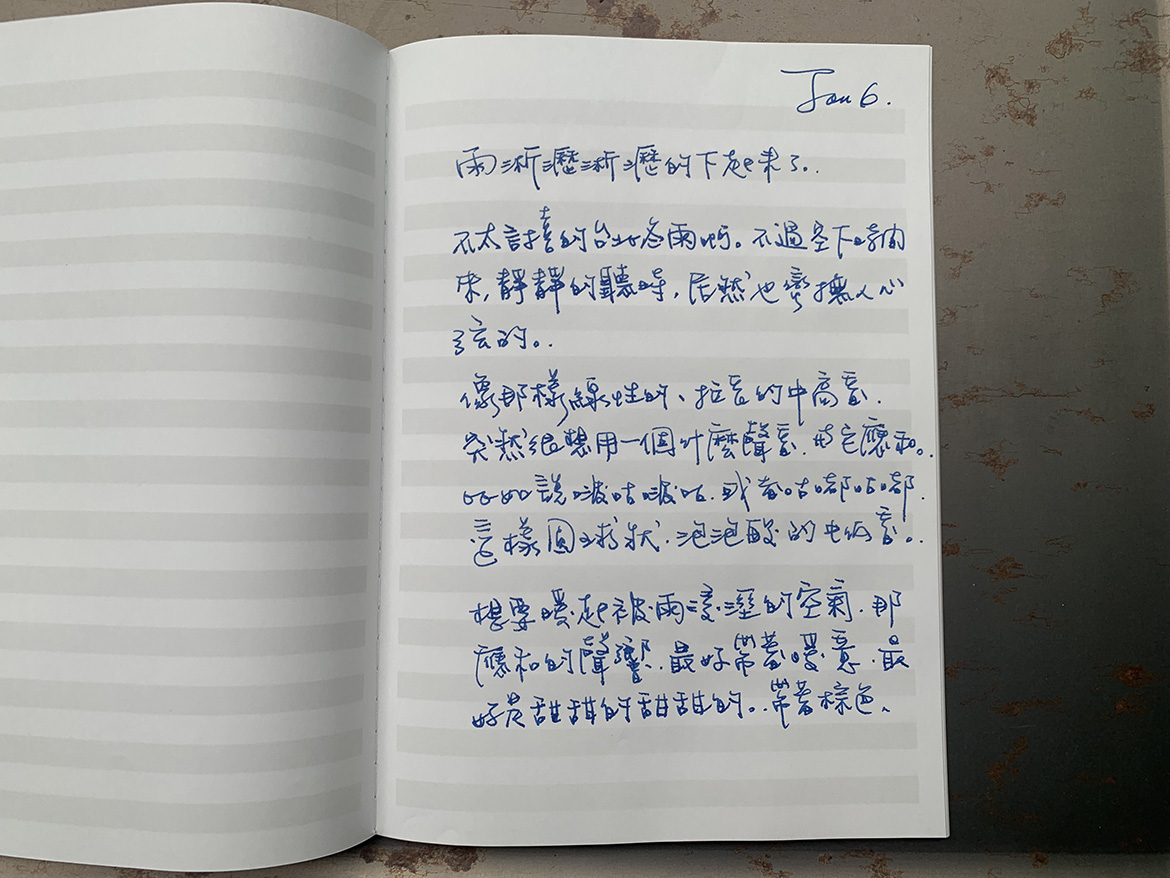 Jan 6.
雨淅瀝淅瀝的下起來了。
不太討喜的台北冬雨啊。不過坐下時間
來,靜靜的聽時,居然也蠻撫人心
弦的。
像那樣線性的、拉長的中高音.
突然很想用一個什麼聲音.與它應和。
比如說啵咕啵咕.或者咕嘟咕嘟.
這樣圓球狀.泡泡般的中低音。
想要暖起被雨浸溼的空氣.那
應和的聲響.最好帶著暖意.最
好是甜甜的甜甜的。帶著棕色、